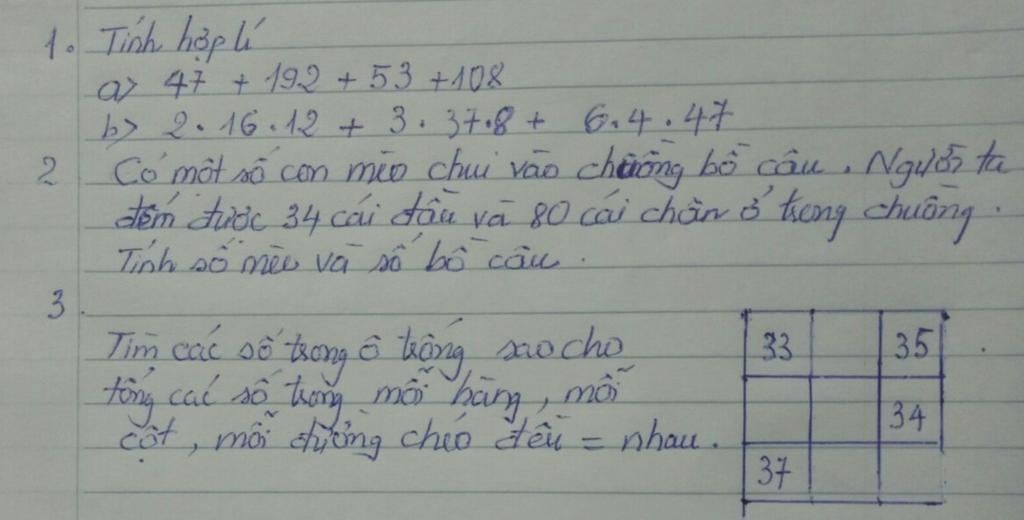 1. Tính hợp lí
a> 47 + 192 + 53 + 108
b> 2.16.12 + 3.37.8 + 6.4.47
2 Có một số con mèo chui vào chuồng bồ câu. Người ta
đếm được 34 cái đầu và 80 cái chân ở trong chuồng.
Tính số mèo và số bồ câu.
3.
Tìm các số trong ô trống sao cho
tổng các số trong mỗi hàng, mỗi
cột, mỗi đường chéo đều = nhau.
33 35
34
37